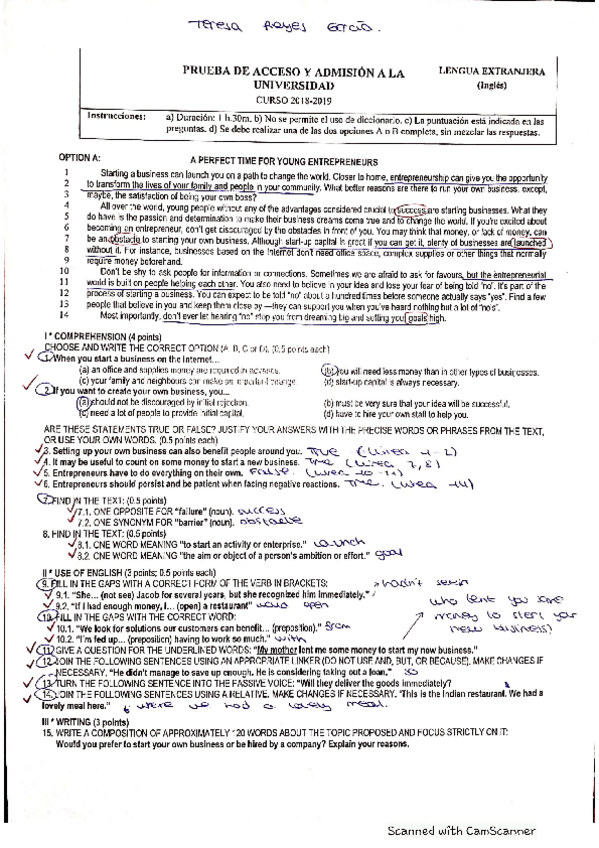 Teresa Reyes García.
PRUEBA DE ACCESO Y ADMISIÓN A LA
UNIVERSIDAD
CURSO 2018-2019
LENGUA EXTRANJERA
(Inglés)
Instrucciones:
a) Duración: 1 h.30m. b) No se permite el uso de diccionario. c) La puntuación está indicada en las
preguntas. d) Se debe realizar una de las dos opciones A o B completa, sin mezclar las respuestas.
OPTION A:
A PERFECT TIME FOR YOUNG ENTREPRENEURS
1 Starting a business can launch you on a path to change the world. Closer to home, entrepreneurship can give you the opportunity
2 to transform the lives of your family and people in your community. What better reasons are there to run your own business, except,
3 maybe, the satisfaction of being your own boss?
4 All over the world, young people without any of the advantages considered crucial to success are starting businesses. What they
5 do have is the passion and determination to make their business dreams come true and to change the world. If you're excited about
6 becoming an entrepreneur, don't get discouraged by the obstacles in front of you. You may think that money, or lack of money, can
7 be an obstacle to starting your own business. Although start-up capital is great if you can get it, plenty of businesses are launched
8 without it. For instance, businesses based on the Internet don't need office space, complex supplies or other things that normally
9 require money beforehand.
10 Don't be shy to ask people for information or connections. Sometimes we are afraid to ask for favours, but the entrepreneurial
11 world is built on people helping each other. You also need to believe in your idea and lose your fear of being told "no". It's part of the
12 process of starting a business. You can expect to be told "no" about a hundred times before someone actually says "yes". Find a few
13 people that believe in you and keep them close by —they can support you when you've heard nothing but a lot of "no's".
14 Most importantly, don't ever let hearing "no" stop you from dreaming big and setting your goals high.
I * COMPREHENSION (4 points)
CHOOSE AND WRITE THE CORRECT OPTION (A, B, C or D). (0.5 points each)
1. When you start a business on the Internet…
(a) an office and supplies money are required in advance.
(b) you will need less money than in other types of businesses.
(c) your family and neighbours can make an important change.
(d) start-up capital is always necessary.
2. If you want to create your own business, you…
(a) should not be discouraged by initial rejection.
(b) must be very sure that your idea will be successful.
(c) need a lot of people to provide initial capital.
(d) have to hire your own staff to help you.
ARE THESE STATEMENTS TRUE OR FALSE? JUSTIFY YOUR ANSWERS WITH THE PRECISE WORDS OR PHRASES FROM THE TEXT,
OR USE YOUR OWN WORDS. (0.5 points each)
3. Setting up your own business can also benefit people around you. True (línea 1-2)
4. It may be useful to count on some money to start a new business. True (línea 7,8)
5. Entrepreneurs have to do everything on their own. False. (línea 10-11)
6. Entrepreneurs should persist and be patient when facing negative reactions. True. (línea 14)
7. FIND IN THE TEXT: (0.5 points)
7.1. ONE OPPOSITE FOR "failure" (noun). success
7.2. ONE SYNONYM FOR "barrier" (noun). obstacle
8. FIND IN THE TEXT: (0.5 points)
8.1. ONE WORD MEANING "to start an activity or enterprise." launch
8.2. ONE WORD MEANING "the aim or object of a person's ambition or effort." goal
II * USE OF ENGLISH (3 points; 0.5 points each)
9. FILL IN THE GAPS WITH A CORRECT FORM OF THE VERB IN BRACKETS:
hadn't seen
9.1. "She… (not see) Jacob for several years, but she recognized him immediately."
9.2. "If I had enough money, I… (open) a restaurant" would open
10. FILL IN THE GAPS WITH THE CORRECT WORD:
10.1. "We look for solutions our customers can benefit… (preposition)." from
10.2. "I'm fed up… (preposition) having to work so much." with
who lent you some
money to start your
new business?
11. GIVE A QUESTION FOR THE UNDERLINED WORDS: "My mother lent me some money to start my new business."
12. JOIN THE FOLLOWING SENTENCES USING AN APPROPRIATE LINKER (DO NOT USE AND, BUT, OR BECAUSE). MAKE CHANGES IF
NECESSARY. "He didn't manage to save up enough. He is considering taking out a loan." so
13. TURN THE FOLLOWING SENTENCE INTO THE PASSIVE VOICE: "Will they deliver the goods immediately?
14. JOIN THE FOLLOWING SENTENCES USING A RELATIVE. MAKE CHANGES IF NECESSARY. "This is the Indian restaurant. We had a
lovely meal here." where we had a lovely meal.
III * WRITING (3 points)
15. WRITE A COMPOSITION OF APPROXIMATELY 120 WORDS ABOUT THE TOPIC PROPOSED AND FOCUS STRICTLY ON IT:
Would you prefer to start your own business or be hired by a company? Explain your reasons.
Scanned with CamScanner